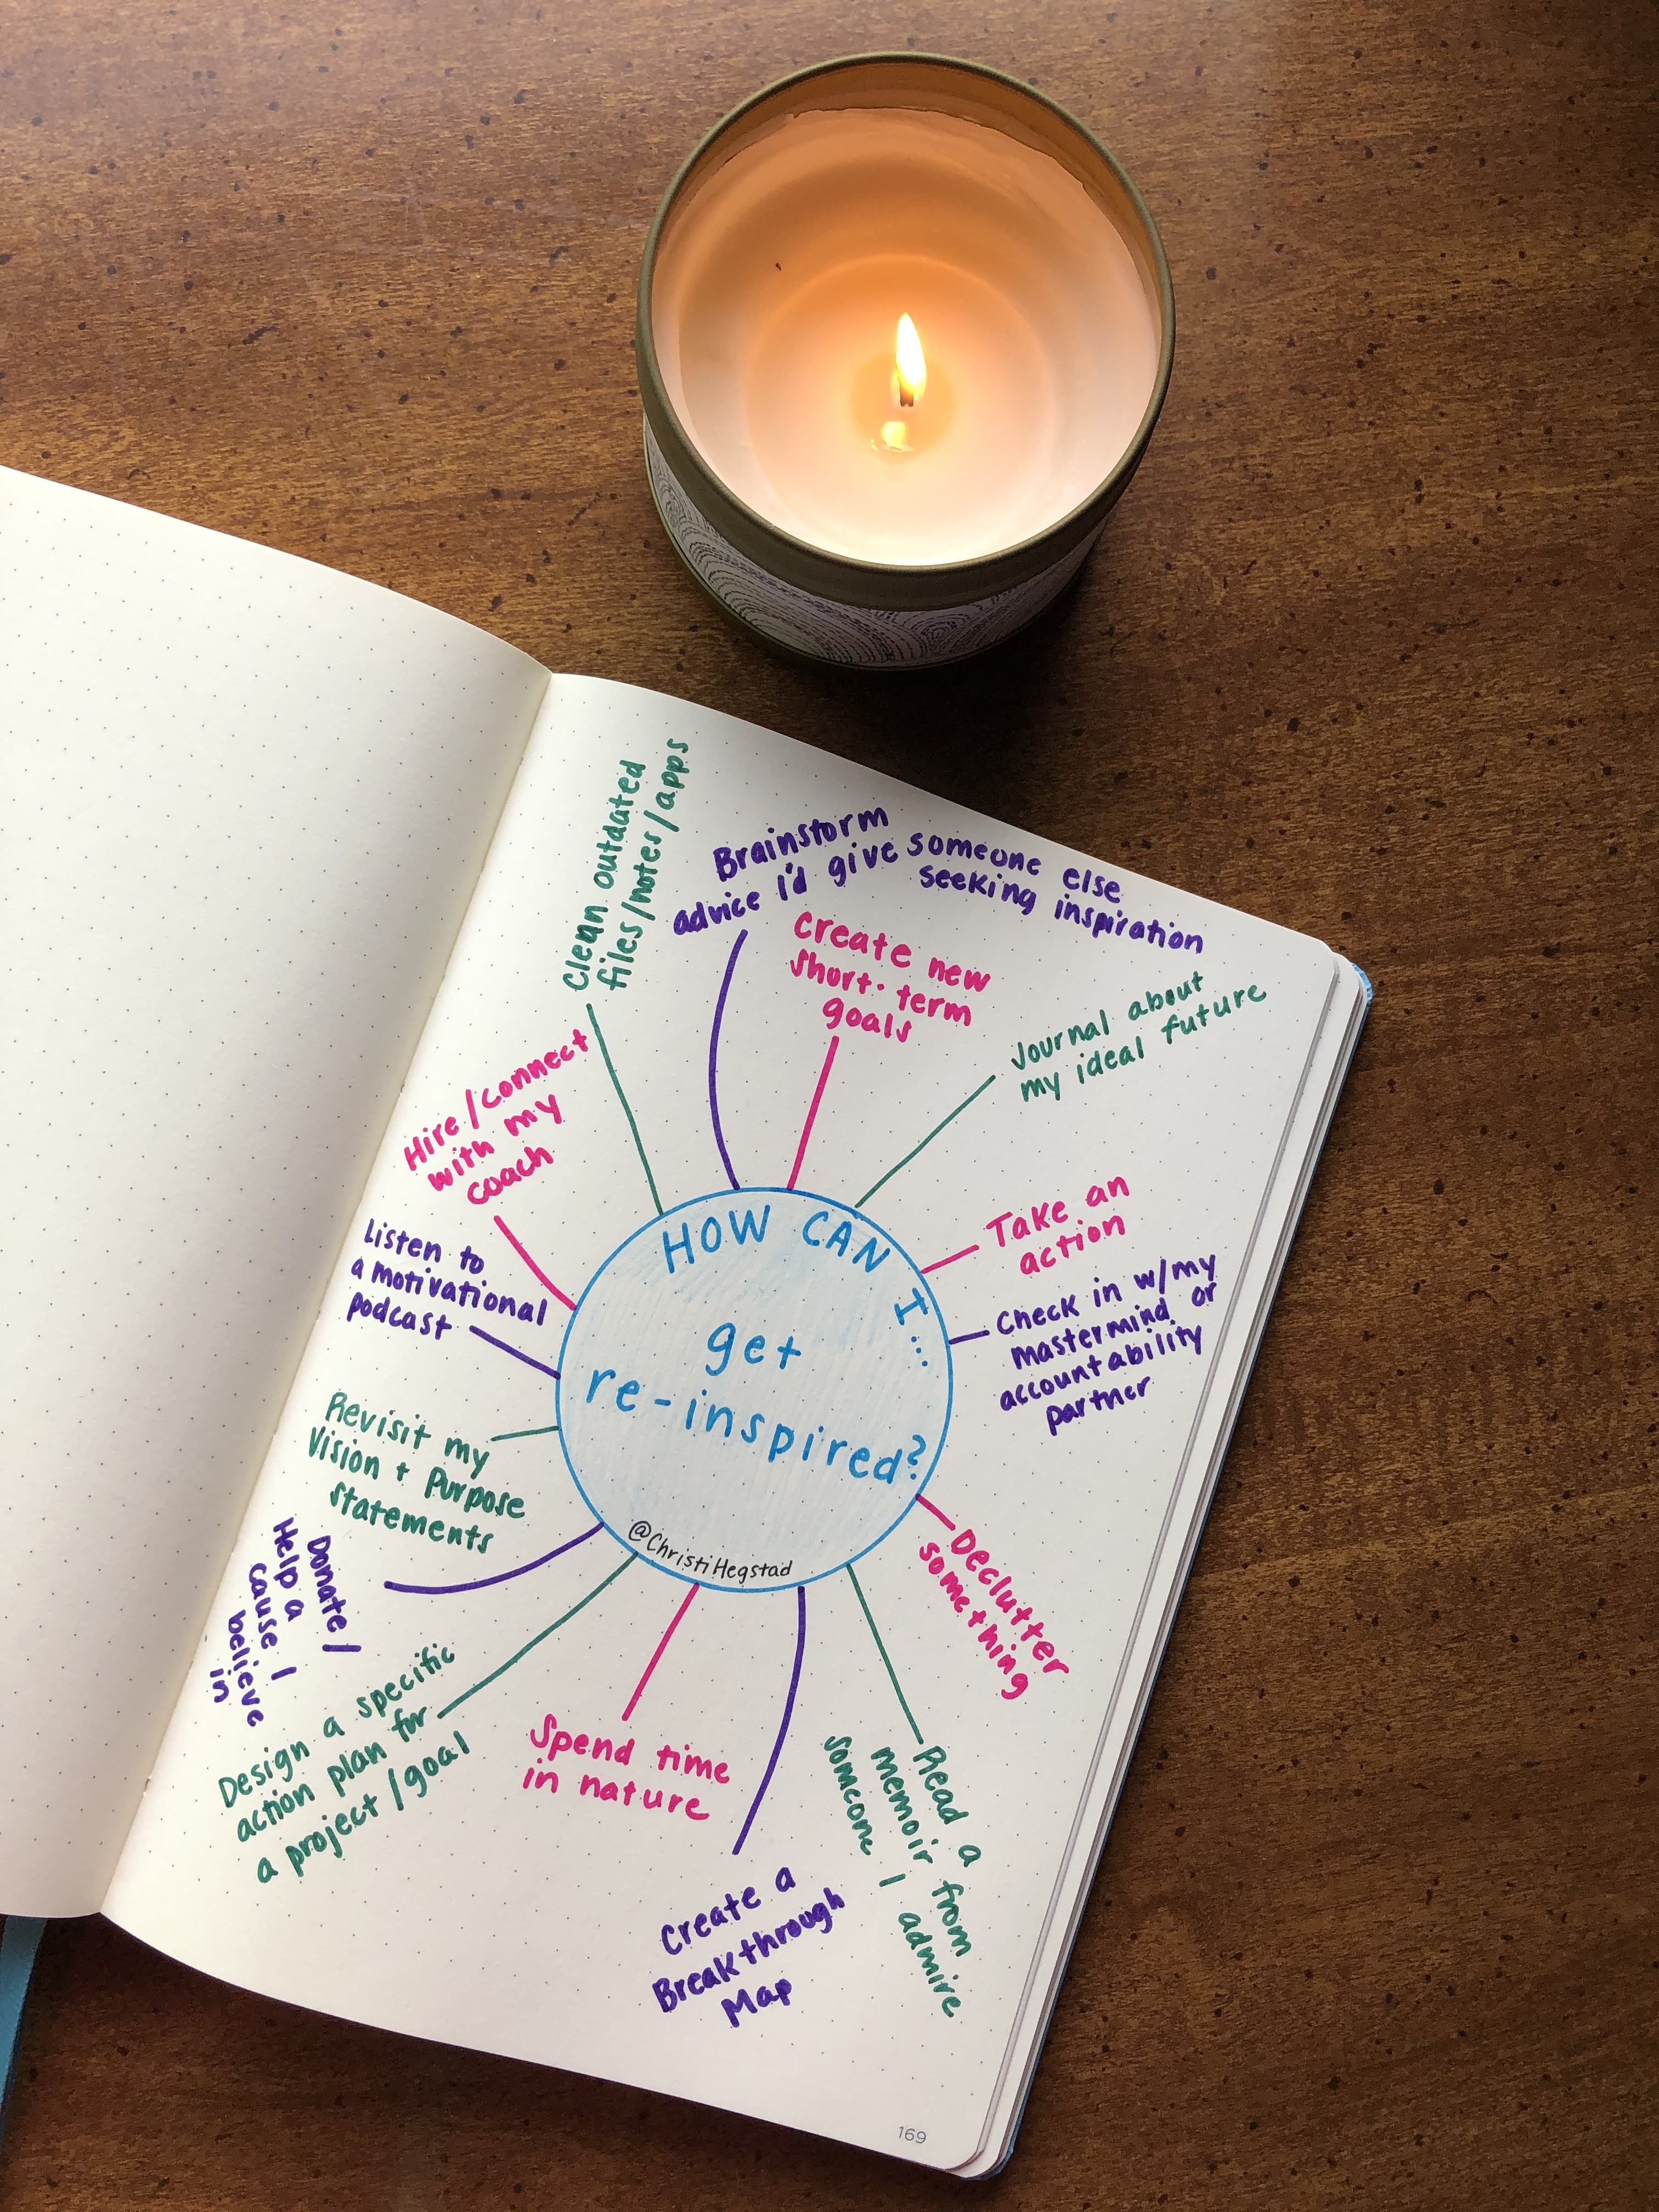 HOW CAN I...
get
re-inspired?
@ChristiHegstad
Clean outdated
files/notes/apps
Brainstorm
advice I'd give someone else
seeking inspiration
Create new
short-term
goals
Journal about
my ideal future
Take an
action
Check in w/my
mastermind or
accountability
partner
Declutter
something
Read a
memoir from
someone I admire
Create a
Breakthrough
Map
Spend time
in nature
Design a specific
action plan for
a project/goal
Donate/
Help a
cause I
believe
in
Revisit my
Vision + Purpose
statements
Listen to
a motivational
podcast
Hire/connect
with my
coach
169